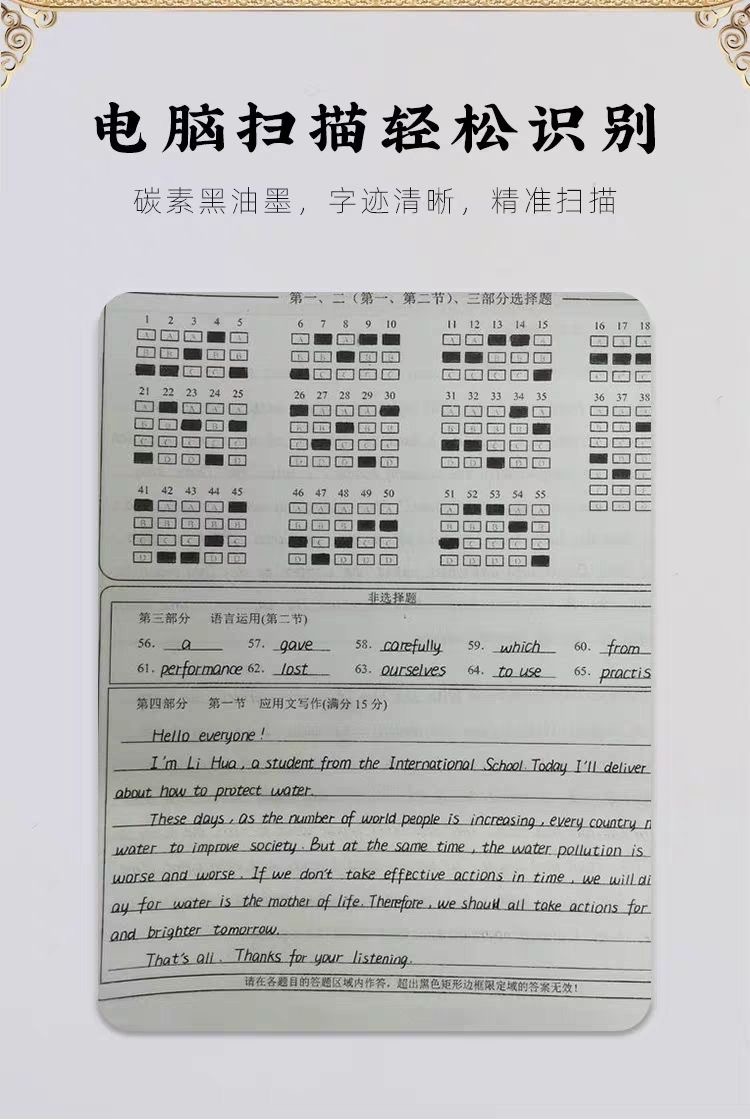 电脑扫描轻松识别
碳素黑油墨，字迹清晰，精准扫描
第一、二（第一、第二节）、三部分选择题
1 2 3 4 5 6 7 8 9 10 11 12 13 14 15 16 17 18
21 22 23 24 25 26 27 28 29 30 31 32 33 34 35 36 37 38
41 42 43 44 45 46 47 48 49 50 51 52 53 54 55
非选择题
第三部分 语言运用(第二节)
56. a 57. gave 58. carefully 59. which 60. from
61. performance 62. lost 63. ourselves 64. to use 65. practis
第四部分 第一节 应用文写作(满分 15 分)
Hello everyone!
I'm Li Hua, a student from the International School. Today I'll deliver
about how to protect water.
These days, as the number of world people is increasing, every country
water to improve society. But at the same time, the water pollution is
worse and worse. If we don't take effective actions in time, we will di
ay for water is the mother of life. Therefore, we should all take actions for
and brighter tomorrow.
That's all. Thanks for your listening.
请在各题目的答题区域内作答，超出黑色矩形边框限定域的答案无效！